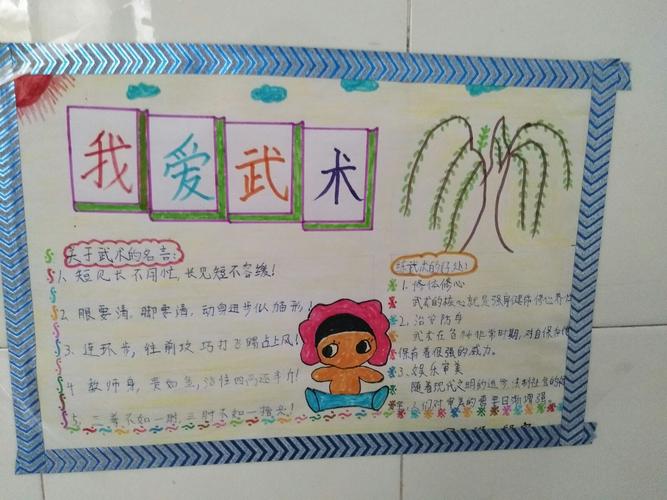 我爱武术
关于武术的名言：
1. 短见长不同忙，长见短不容缓！
2. 眼要清，脚要清，动身进步似猫形！
3. 连环步，往前攻，巧打飞踢占上风！
4. 教师身，贵如金，
5. 二拳不如一肘，三肘不如一
练武术的好处：
1. 修体修心
武术的核心就是强身健体修心养
2. 治安防身
武术在各种非常时期，对自保和
保有着很强的威力。
3. 娱乐审美
随着现代文明的进步，法制社会的
人们对审美的需要日渐增强。